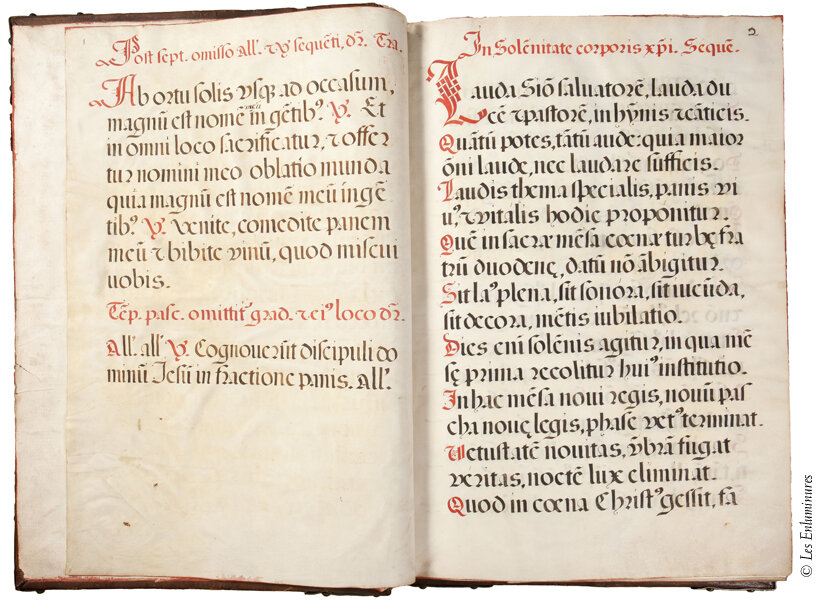 Post sept. omisso all'. et ℣ sequēti, dr̄. Tra.
Ab ortu solis usq̷ ad occasum,
magnū est nomē meū in gētibꝰ. ℣. Et
in omni loco sacrificatur, ⁊ offer
tur nomini meo oblatio munda
quia magnū est nomē meū in gē
tibꝰ. ℣. Venite, comedite panem
meū ⁊ bibite vinū, quod miscui
uobis.
Tēp. pasc. omittit᷑ grad. ⁊ eiꝰ loco dr̄.
All'. all' ℣. Cognouerūt discipuli do
minū Jesū in fractione panis. all'.
2
In Solēnitate corporis xp̄i. Sequē.
Lauda Siō saluatorē, lauda du
cē ⁊ pastorē, in hȳnis ⁊ cāticis.
Quātū potes, tātū aude: quia maior
ōni laude, nec laudare sufficis.
Laudis thema specialis, panis vi
uꝰ, ⁊ vitalis hodie proponitur.
Quē in sacræ mēsa cœnæ turbę fra
trū duodenę, datū nō ābigitur.
Sit laꝰ plena, sit sonora, sit iucūda,
sit decora, mētis iubilatio.
Dies enī solēnis agitur, in qua mē
sę prima recolitur huiꝰ institutio.
In hac mēsa noui regis, nouū pas
cha nouę legis, phase vetꝰ terminat.
Vetustatē nouitas, vbrā fugat
veritas, noctē lux eliminat.
Quod in cœna Christꝰ gessit, fā
© Les Enluminures